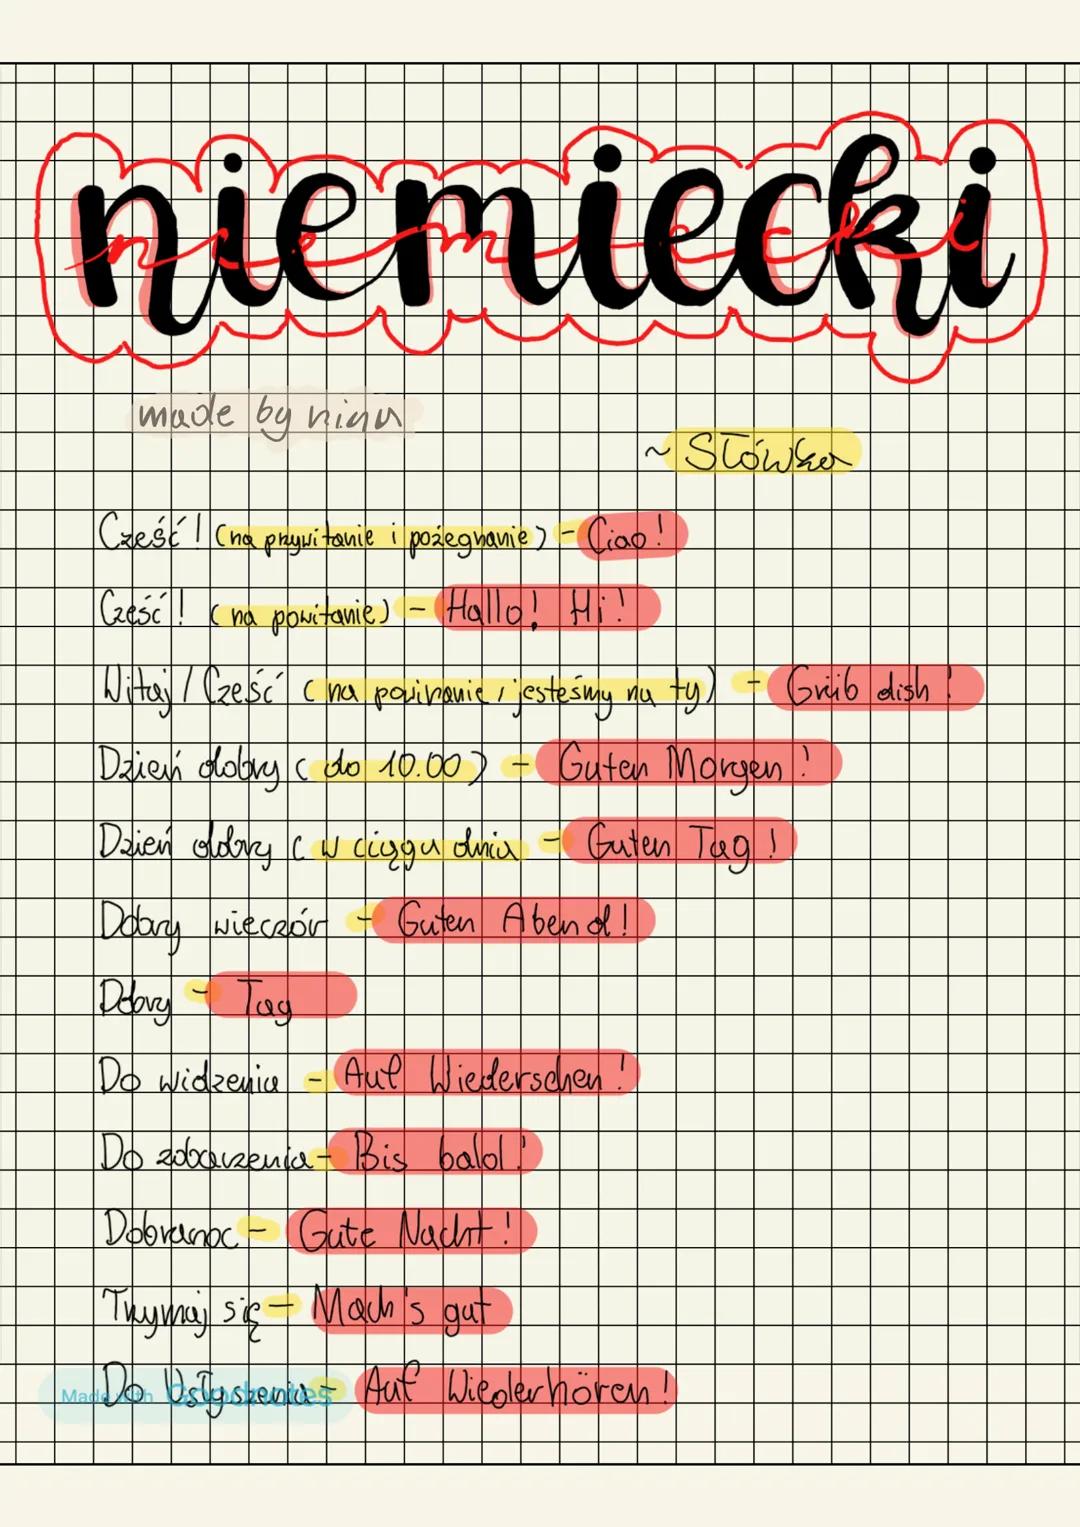 niemiecki
niemiecki
made by nina
~ Słówka
Cześć! (na przywitanie i pożegnanie) - Ciao!
Cześć! (na powitanie) - Hallo! Hi!
Witaj / Cześć (na powiranie, jesteśmy na ty) - Grüb dish!
Dzień dobry (do 10.00) - Guten Morgen!
Dzień dobry (w ciągu dnia - Guten Tag!
Dobry wieczór - Guten Abend!
Dobry - Tag
Do widzenia - Auf Wiederschen!
Do zobaczenia - Bis bald!
Dobranoc - Gute Nacht!
Trzymaj się - Mach's gut
Do Usłyszenia - Auf Wiederhören!
Made with Goodnotes